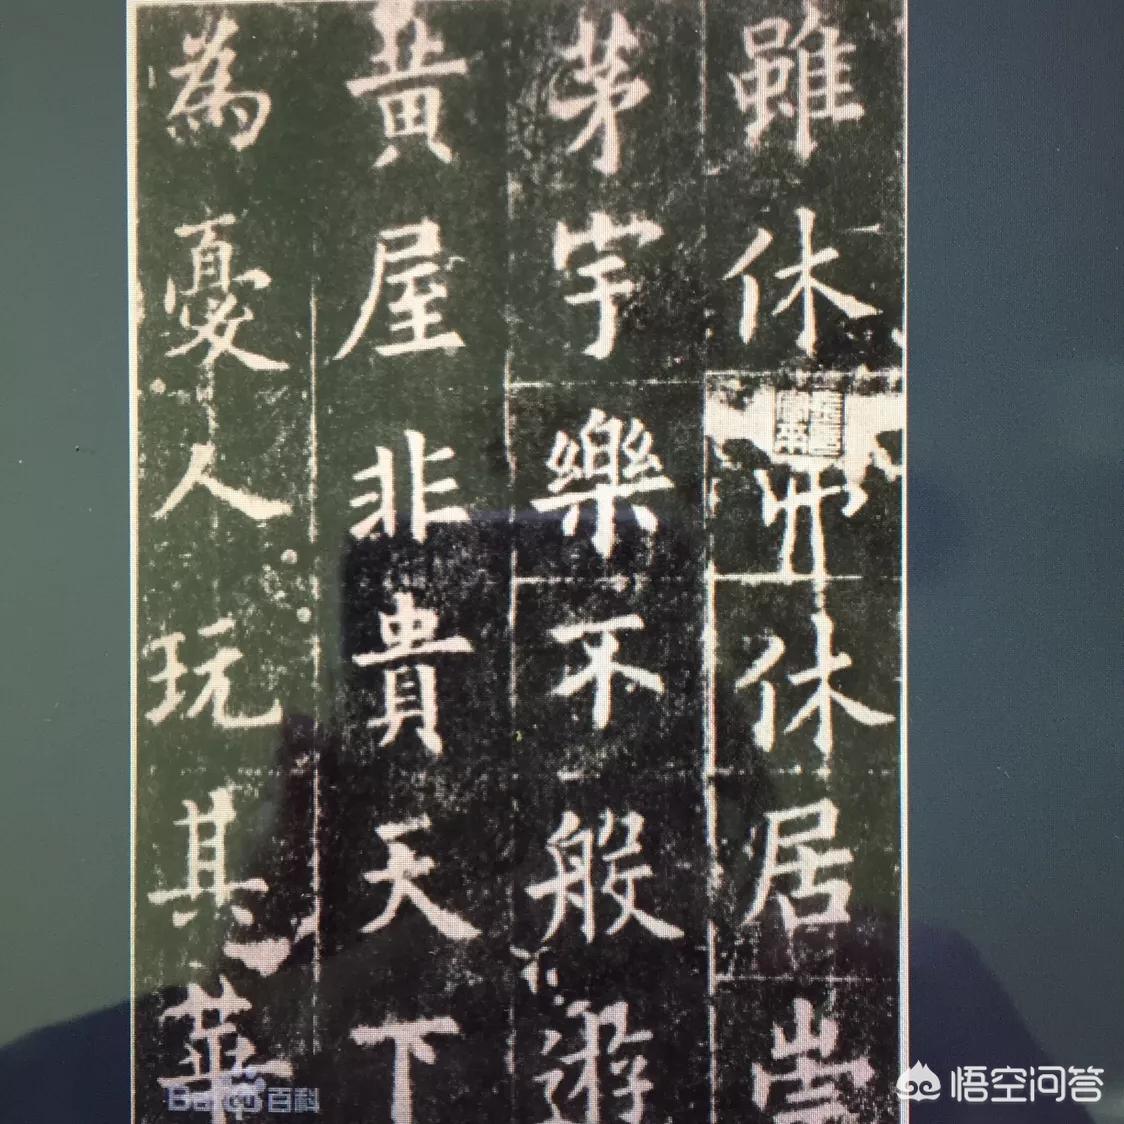 雖休休居崇
茅宇樂不般遊
黃屋非貴天下
為憂人玩其華
Baidu百科
悟空问答